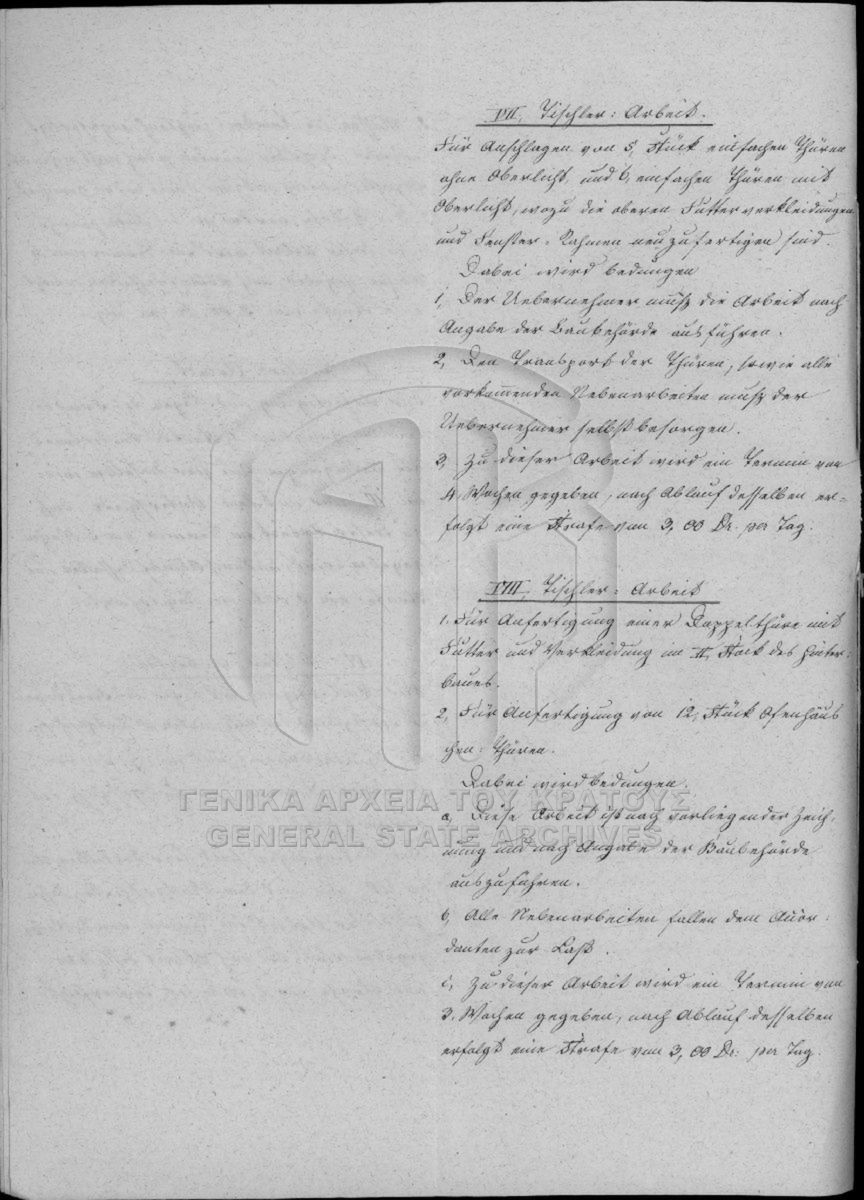 VII, Tischler: Arbeit.
Für Anschlagen von 5, Stück einfachen Thüren
ohne Oberlicht, und 6, einfachen Thüren mit
Oberlicht, wozu die oberen Futterverkleidungen
und Fenster-Rahmen neu zu fertigen sind.
Dabei wird bedungen
1, Der Uebernehmer muß die Arbeit nach
Angabe der Baubehörde ausführen.
2, Den Transport der Thüren, sowie alle
vorkommenden Nebenarbeiten muß der
Uebernehmer selbst besorgen.
3, Zu dieser Arbeit wird ein Termin von
4, Wochen gegeben, nach Ablauf desselben er-
folgt eine Strafe von 3,00 Dr. per Tag.
VIII, Tischler: Arbeit
1. Für Anfertigung einer Doppelthüre mit
Futter und Verkleidung im II, Stock des Hinter-
baues.
2, Für Anfertigung von 12, Stück Ofenhäus
chen: Thüren.
Dabei wird bedungen.
a, Diese Arbeit ist nach vorliegender Zeich-
nung und nach Angabe der Baubehörde
auszuführen.
b, Alle Nebenarbeiten fallen dem Accor-
danten zur Last.
c, Zu dieser Arbeit wird ein Termin von
3, Wochen gegeben, nach Ablauf desselben
erfolgt eine Strafe von 3,00 Dr: per Tag.
ΓΕΝΙΚΑ ΑΡΧΕΙΑ ΤΟΥ ΚΡΑΤΟΥΣ
GENERAL STATE ARCHIVES